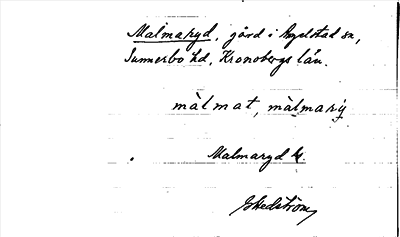 Malmaryd, gård i Agelstad sn,
Sunnerbo hd, Kronobergs län.
màlmat, màlmarẙ
Malmaryd